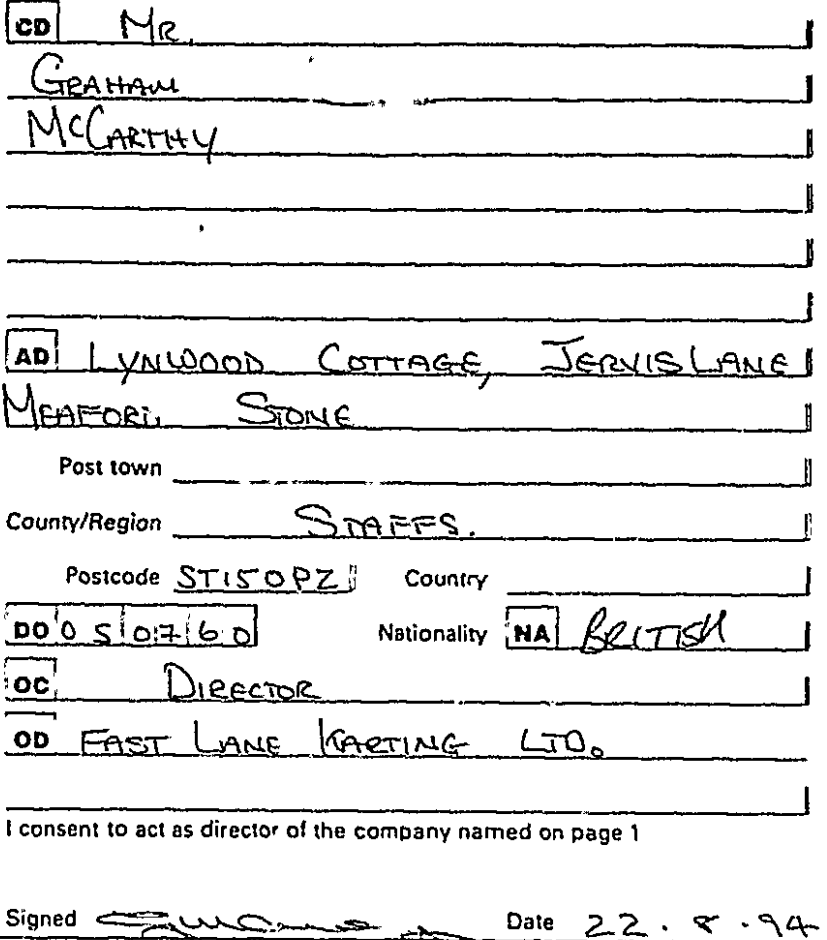 CD MR.
GRAHAM
McCARTHY
AD LYNWOOD COTTAGE, JERVIS LANE
MEAFORD, STONE
Post town
County/Region STAFFS.
Postcode ST15 0PZ Country
DO 05 07 60 Nationality NA BRITISH
OC DIRECTOR
OD FAST LANE KARTING LTD.
I consent to act as director of the company named on page 1
Signed Date 22.8.94